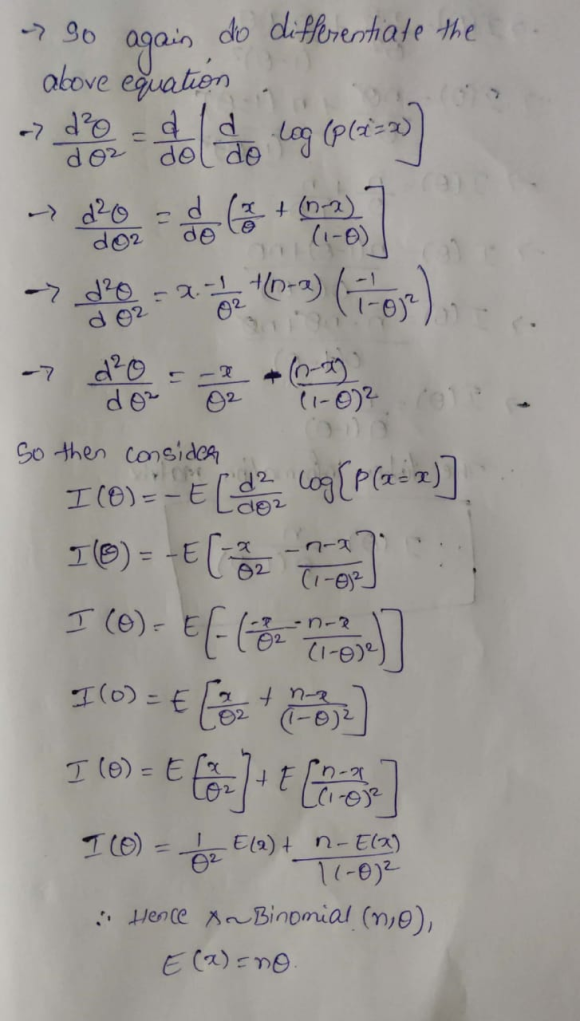 → So again do differentiate the
above equation
→ d²θ/dθ² = d/dθ [d/dθ log (P(x=x)]
→ d²θ/dθ² = d/dθ (x/θ + (n-x)/(1-θ)]
→ d²θ/dθ² = x·-1/θ² + (n-x) (-1/1-θ)²)
→ d²θ/dθ² = -x/θ² - (n-x)/(1-θ)²
So then consider
I(θ) = -E [d²/dθ² log{P(x=x)]
I(θ) = -E [-x/θ² - n-x/(1-θ)²]
I(θ) = E[-(-x/θ² - n-x/(1-θ)²)]
I(θ) = E [x/θ² + n-x/(1-θ)²]
I(θ) = E [x/θ²] + E [n-x/(1-θ)²]
I(θ) = 1/θ² E(x) + n-E(x)/(1-θ)²
∴ Hence X~Binomial (n,θ),
E(x) = nθ.